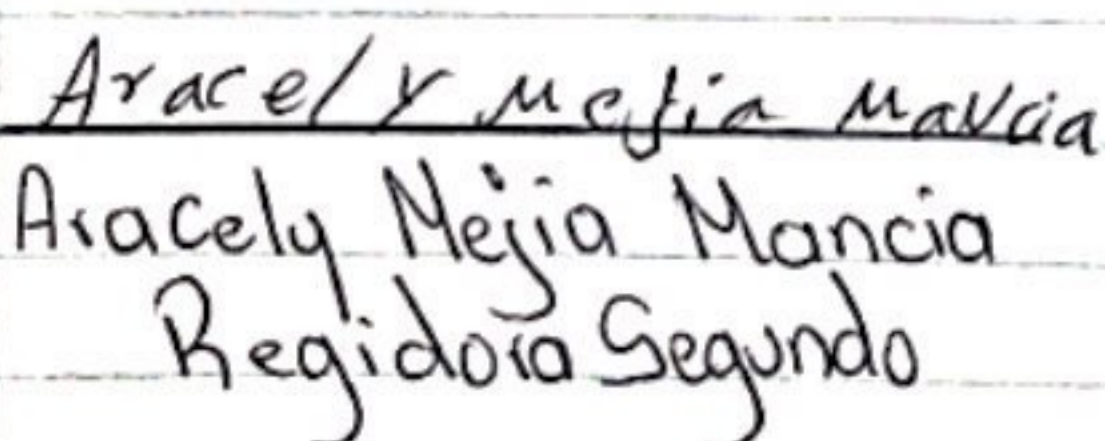 Aracely Mejia Mancia
Aracely Mejia Mancia
Regidora Segundo